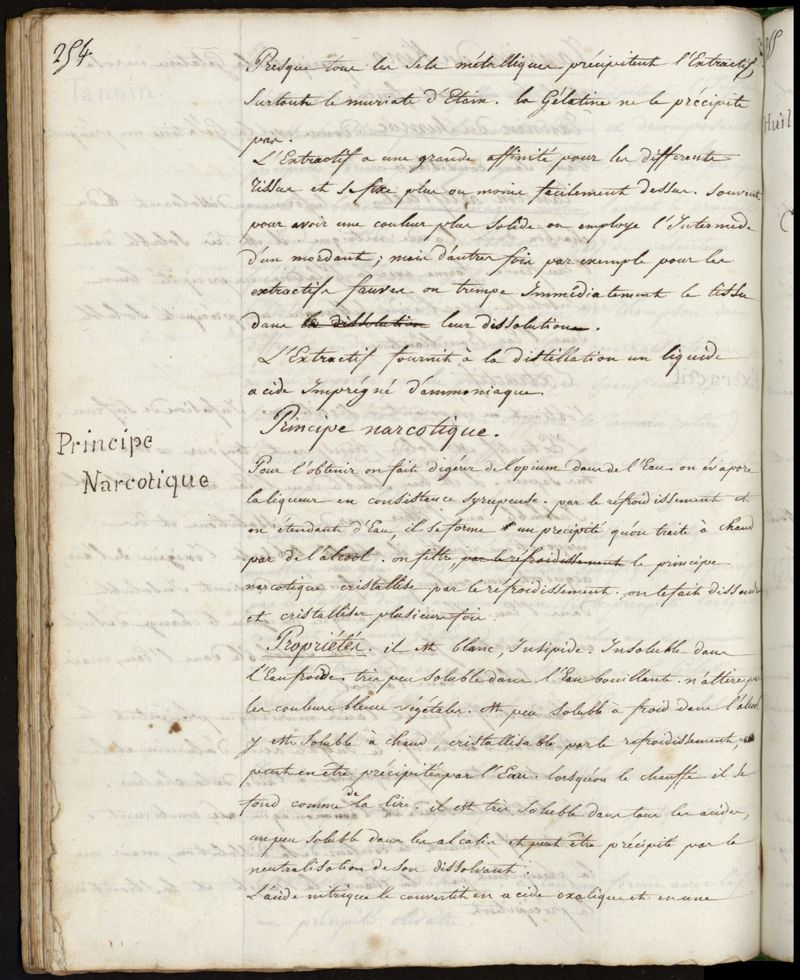 254
Presque tous les sels métalliques précipitent l'Extractif,
surtout le muriate d'Etain. la Gélatine ne le précipite
pas.
L'Extractif a une grande affinité pour les differents
tissus et se fixe plus ou moins facilement dessus. souvent
pour avoir une couleur plus solide on employe l'Intermede
d'un mordant; mais d'autres fois par exemple pour les
extractifs fauves on trempe Immédiatement le tissu
dans la dissolution leur dissolution.
L'Extractif fournit à la distillation un liquide
acide Imprégné d'ammoniaque.
Principe narcotique.
Principe
Narcotique
Pour l'obtenir on fait digérer de l'opium dans de l'Eau on évapore
la liqueur en consistence syrupeuse. par le réfroidissement et
en étendant d'Eau, il se forme un precipité qu'on traite à chaud
par de l'alcool. on filtre, par le réfroidissement le principe
narcotique cristallise par le réfroidissement. on le fait dissoudre
et cristalliser plusieurs fois.
Propriétés. il est blanc, Insipide. Insoluble dans
l'Eau froide. très peu soluble dans l'Eau bouillante. n'altère pas
les couleurs bleues végétales. est peu soluble à froid dans l'alcool
y est soluble à chaud, cristallisable par le refroidissement,
peut en être précipité par l'Eau. lorsqu'on le chauffe il se
fond comme de la Cire. il est très soluble dans tous les acides,
un peu soluble dans les alcalis et peut être précipité par la
neutralisation de son dissolvant.
L'acide nitrique le convertit en acide oxalique et en une
Huil